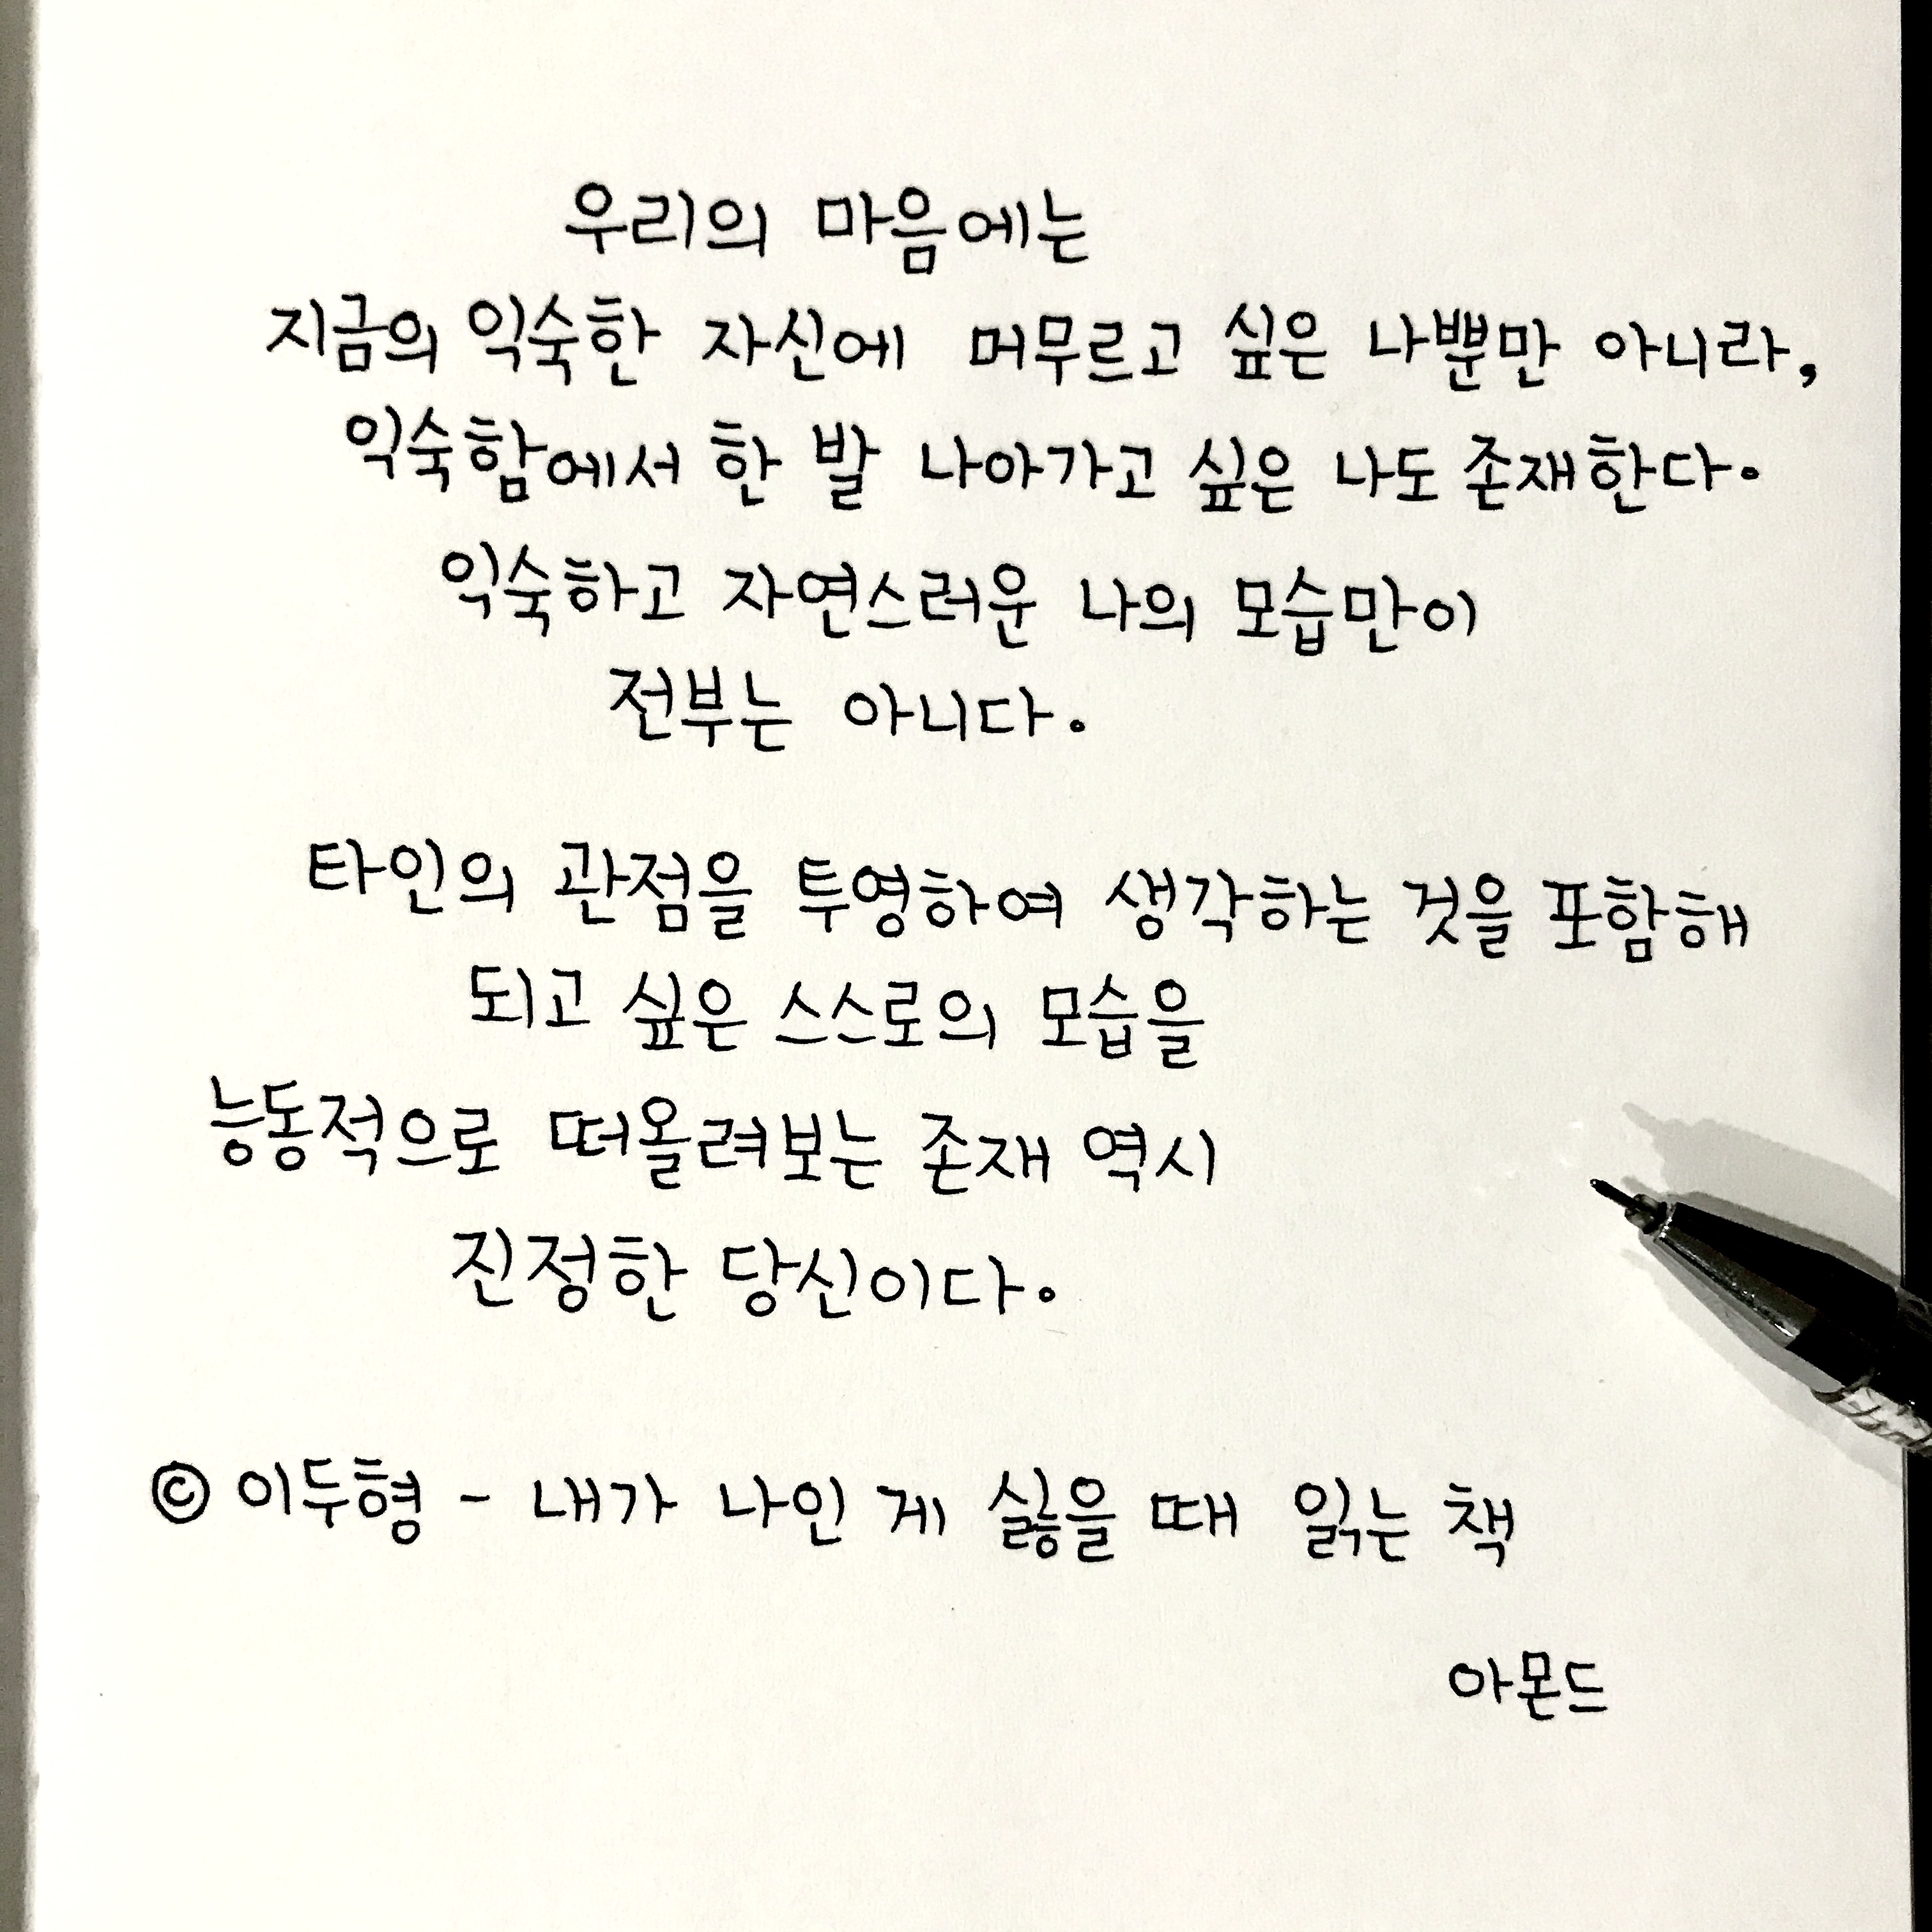 우리의 마음에는
지금의 익숙한 자신에 머무르고 싶은 나뿐만 아니라,
익숙함에서 한 발 나아가고 싶은 나도 존재한다.
익숙하고 자연스러운 나의 모습만이
전부는 아니다.
타인의 관점을 투영하여 생각하는 것을 포함해
되고 싶은 스스로의 모습을
능동적으로 떠올려보는 존재 역시
진정한 당신이다.
© 이두형 - 내가 나인 게 싫을 때 읽는 책
아몬드